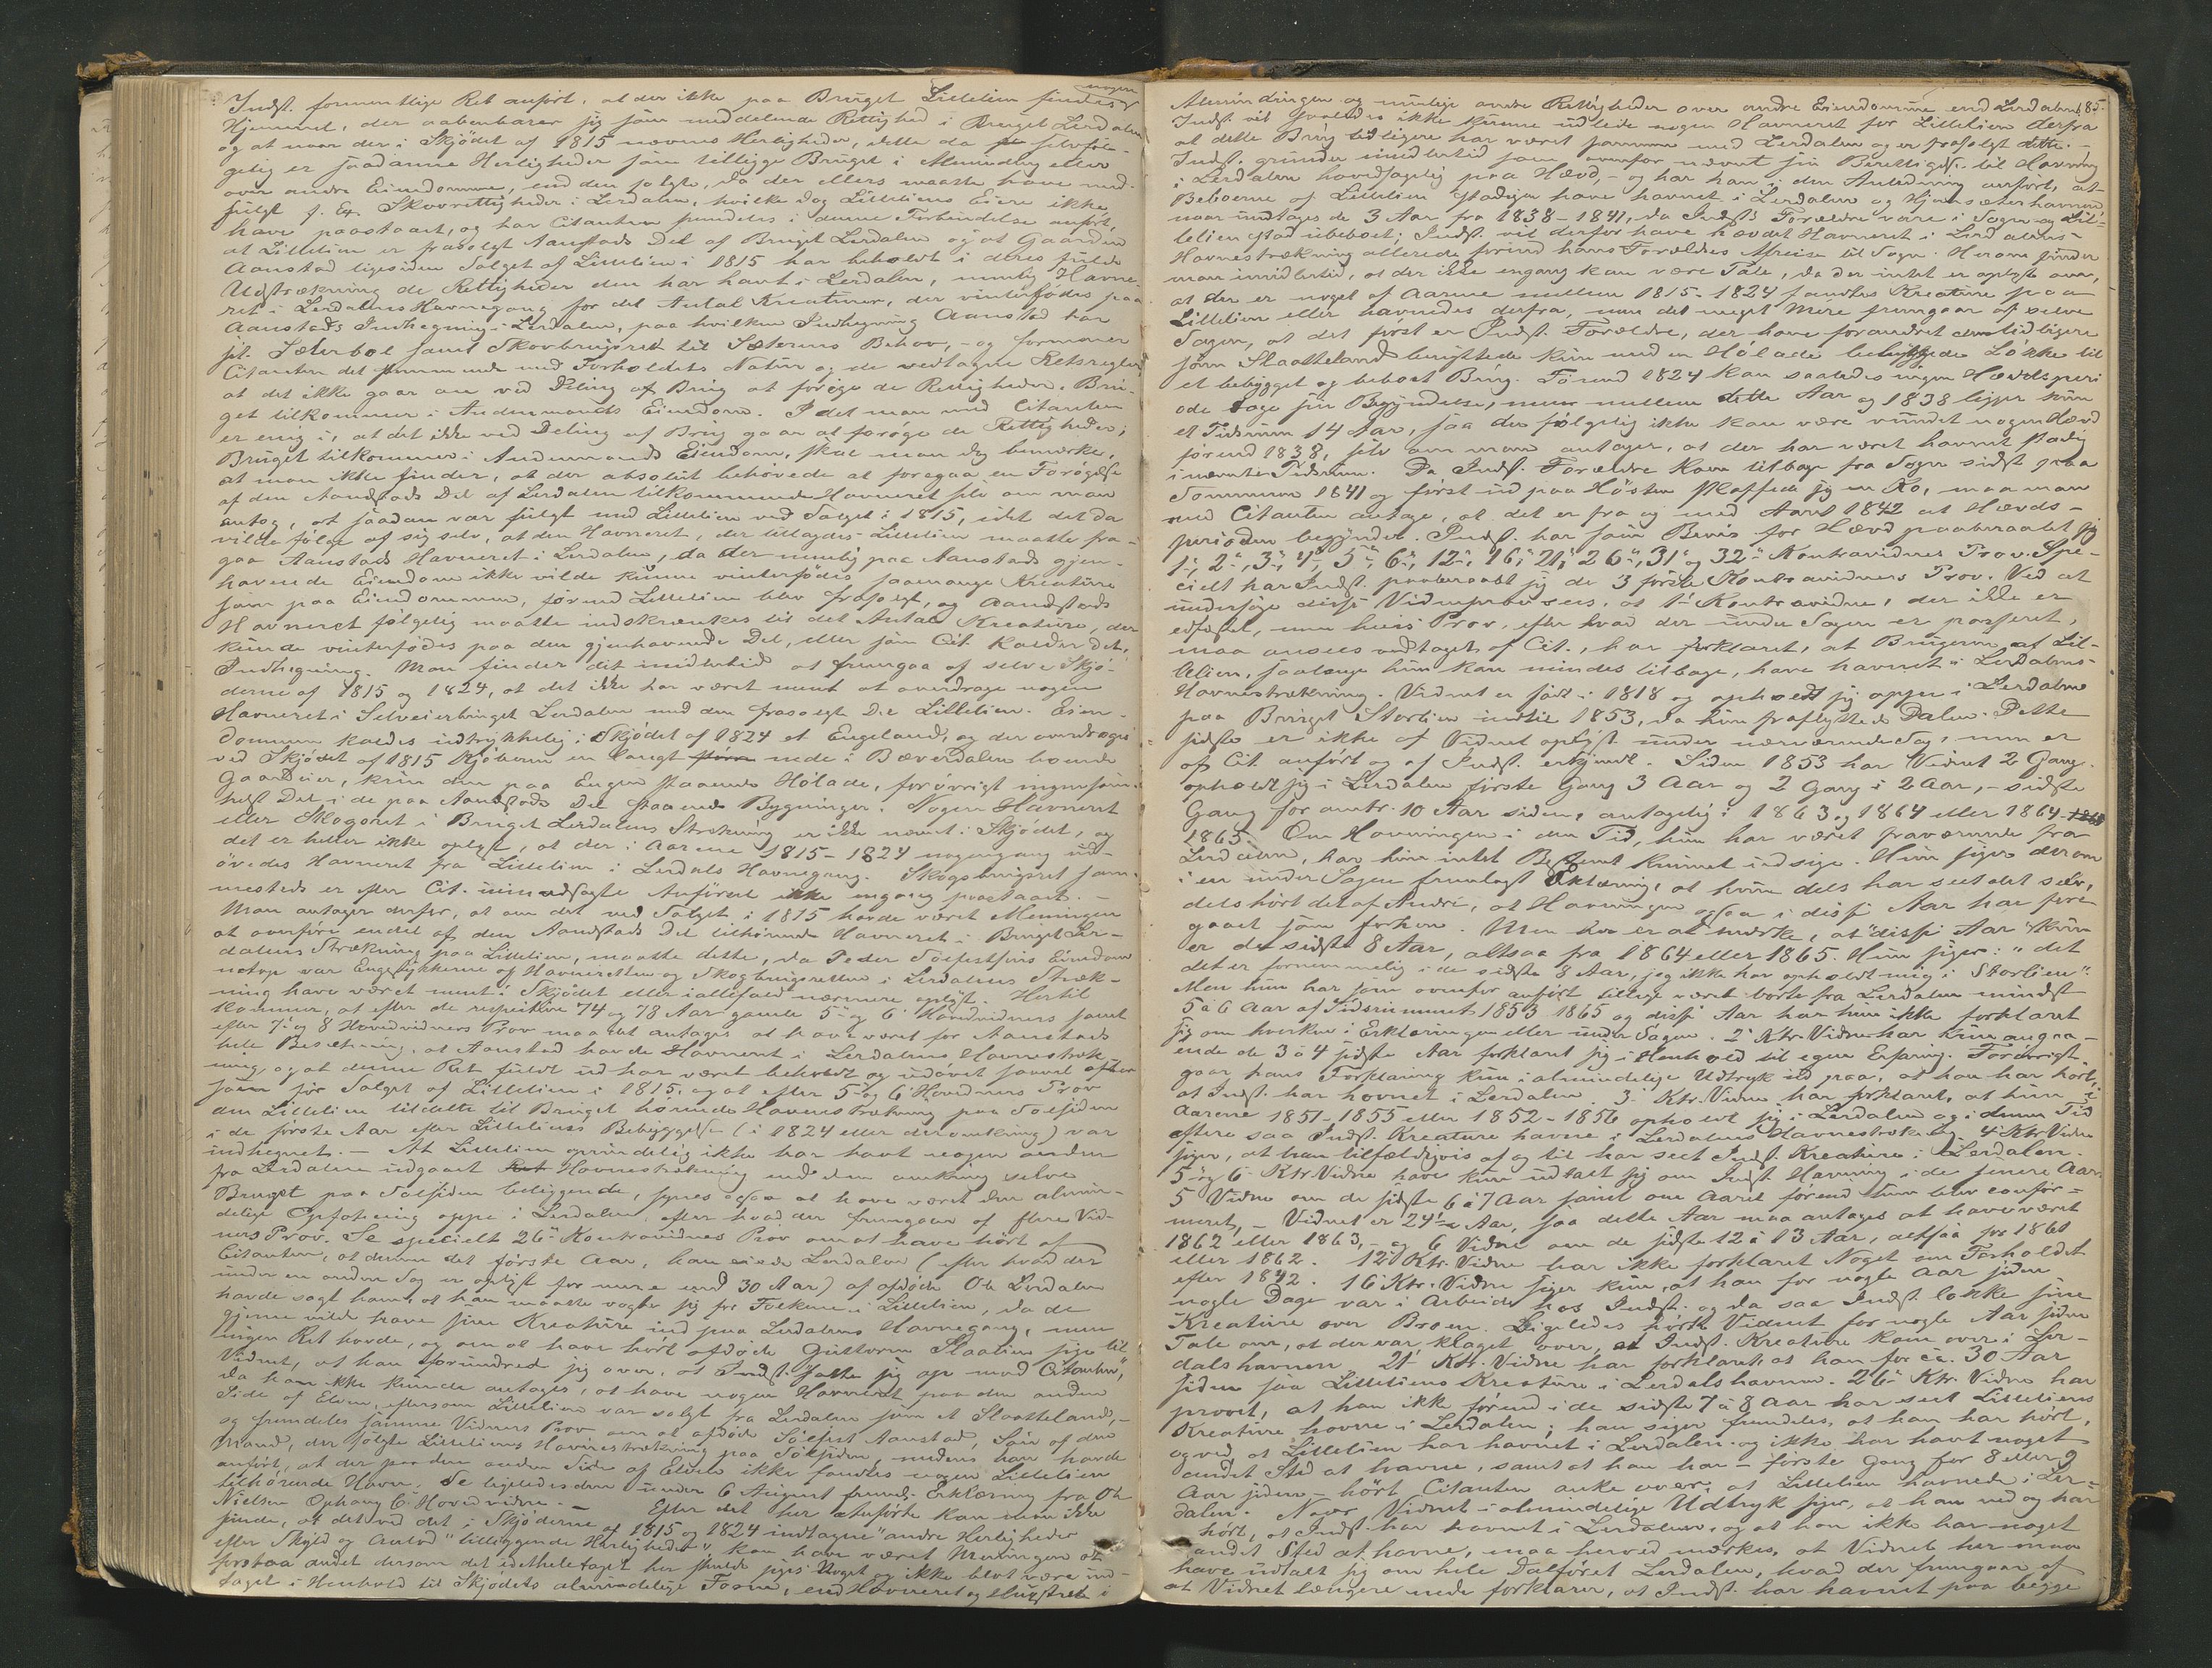 nogen
Indst. formentlige Ret anført, at der ikke paa Bruget Lillelien findes
Hjemmel, der aabenbarer sig som meddelende Rettighed i Bruget Lerdalen
og at naar der i Skjödet af 1815 nævnes Herligheder, dette da selvføl-
gelig er saadanne Herligheder som tilligge Bruget i Almending eller
over andre Eiendomme, end den solgte, da der ellers maatte have med-
fulgt f. Ex. Skovrettigheder i Lerdalen, hvilke dog Lilleliens Eiere ikke
have paastaaet, og har Citanten fremdeles i denne Forbindelse anført,
at Lillelien er frasolgt Aanstads Del af Bruget Lerdalen og at Gaarden
Aanstad ligesiden Salget af Lillelien i 1815 har beholdt i deres fulde
Udstrækning de Rettigheder den har havt i Lerdalen, nemlig Havne-
ret i Lerdalens Havnegang for det Antal Kreaturer, der vinterfødes paa
Aanstads Indhegning i Lerdalen, paa hvilken Indhegning Aanstad har
sit Sæterbol samt Skovbrugsret til Sæterens Behov, - og formener
Citanten det stemmende med Forholdets Natur og de vedtagne Retsregler,
at det ikke gaar an ved Deling af Brug at forøge de Rettigheder, Bru-
get tilkommer i Andenmands Eiendom. Idet man med Citanten
er enig i, at det ikke ved Deling af Brug gaar at forøge de Rettigheder,
Bruget tilkommer i Andenmands Eiendom, skal man dog bemærke,
at man ikke finder, at der absolut behövede at foregaa en Forögelse
af den Aandstads Del af Lerdalen tilkommende Havneret selv om man
antog, at saadan var fulgt med Lillelien ved Salget i 1815, idet det da
vilde følge af sig selv, at den Havneret, der tillagdes Lillelien maatte fra-
gaa Aanstads Havneret i Lerdalen, da der nemlig paa Aanstads gjen-
havende Eiendom ikke vilde kunne vinterfødes saamange Kreature
som paa Eiendommen, førend Lillelien blev frasolgt, og Aandstads
Havneret følgelig maatte indskrænkes til det Antal Kreature, der
kunde vinterfødes paa den gjenhavende Del, eller som Cit. kalder det,
Indhegning. Man finder det imidlertid at fremgaa af selve Skjö-
derne af 1815 og 1824, at det ikke har været ment at overdrage nogen
Havneret i Selveierbruget Lerdalen med den frasolgte Del Lillelien. Eien-
dommen kaldes udtrykkelig i Skjödet af 1824 et Engeland, og der overdroges
ved Skjödet af 1815 Kjöberen en langt nede i Bæverdalen boende
Gaardeier, kun den paa Engen staaende Hölade, forövrigt ingensom-
helst Del i de paa Aandstads Del staaende Bygninger. Nogen Havneret
eller Skogsret i Bruget Lerdalens Strækning er ikke nævnt i Skjödet, og
det er heller ikke oplyst, at der i Aarene 1815-1824 nogengang ud-
övedes Havneret fra Lillelien i Lerdals Havnegang. Skogsbrugsret sam-
mesteds er efter Cit. uimodsagte Anförsel ikke engang paastaaet. -
Man antager derfor, at om det ved Salget i 1815 havde været Meningen
at overføre endel af den Aandstads Del tilhörende Havneret i Bruget Ler-
dalens Strækning paa Lillelien, maatte dette, da Peder Sölfestsöns Eiendom
netop var Engestykkerne og Havneretten og Skogbrugsretten i Lerdalens Stræk-
ning have været nevnt i Skjödet eller iallefald nærmere oplyst. Hertil
kommer, at efter de respektive 74 og 78 Aar gamle 5te og 6te Hovedvidners samt
efter 7de og 8 Hovedvidners Prov maa det antages at have været for Aanstads
hele Besætning, at Aanstad havde Havneret i Lerdalens Havnestræk-
ning, og at denne Ret fuldt ud har været beholdt og udövet saavel efter
som för Salget af Lillelien i 1815, og at efter 5te og 6te Hovedvidners Prov
den Lillelien tildelte til Bruget hørende Havnestrækning paa Solsiden
i de förste Aar efter Lilleliens Bebyggelse (i 1824 eller deromkring) var
indhegnet. - At Lillelien oprindelig ikke har havt nogen anden
fra Lerdalen udgaaet Havnestrækning end den omkring selve
Bruget paa Solsiden beliggende, synes ogsaa at have været den almin-
delige Opfatning oppe i Lerdalen, efter hvad der fremgaar af flere Vid-
ners Prov. Se specielt 26de Kontravidnes Prov om at have hört af
Citanten, at denne det förste Aar, han eiede Lerdalen (efter hvad der
under en anden Sag er oplyst for mere end 30 Aar) af afdöde Ole Lerdalen
havde sagt ham, at han maatte vogte sig for Folkene i Lillelien, da de
gjerne vilde have sine Kreature ind paa Lerdalens Havnegang, men
ingen Ret havde, og om at have hört afdöde Guttorm Slaalien sige til
Vidnet, at han forundred sig over, at Indst. satte sig op mod Citanten,
da han ikke kunde antages, at have nogen Havneret paa den anden
Side af Elven, eftersom Lillelien var solgt fra Lerdalen som et Slaatteland,-
og fremdeles samme Vidners Prov om at afdöde Sölfest Aanstad, Sön af den
Mand, der solgte Lilleliens Havnestrækning paa Solsiden, medens han havde
anfört, at der paa den anden Side af Elven ikke fandtes nogen Lillelien
tilhörende Havn. Se ligeledes den under 6 August freml. Erklæring fra Ole
Nielsen Ophaug 6te Hovedvidne. - Efter det her Anførte kan man ikke
finde, at det ved det i Skjöderne af 1815 og 1824 indtagne "andre Herligheder
efter Skyld og Anlod" "tilliggende Herligheder", kan have været Meningen at
forstaa andet dersom det idetheletaget her skulde siges Noget og ikke blot være ind-
taget i Henhold til Skjödets almindelige Form, end Havneret og Brugsret i
Almindingen og mulige andre Rettigheder over andre Eiendomme end Lerdalen. 85.
Indst. vil saaledes ikke kunne udlede nogen Havneret for Lillelien derfra
at dette Brug tidligere har været sammen med Lerdalen og er frasolgt dette. -
Indst. grunder imidlertid som ovenfor nævnt sin Berettigelse til Havning
i Lerdalen hovedsagelig paa Hævd, - og har han i den Anledning anført, at
Beboerne af Lillelien stadigen have havnet i Lerdalen og Hjemsæterhavnen,
naar undtages de 3 Aar fra 1838-1841, da Indst.s Forældre vare i Sogn og Lil-
lelien stod ubeboet; Indst. vil derfor have hævdet Havneret i Lerdalens
Havnestrækning allerede forend hans Forældres Afreise til Sogn. Herom finder
man imidlertid, at der ikke engang kan være Tale, da der intet er oplyst om,
at der er noget af Aarene mellem 1815-1824 fandtes Kreature paa
Lillelien eller havnedes derfra, men det meget Mere fremgaar af selve
Sagen, at det först er Indst. Forældre, der have forandret den tidligere
som Slaatteland benyttede kun med en Hölade bebyggede Løkke til
et bebygget og beboet Brug. Förend 1824 kan saaledes ingen Hævdsperi
ode tage sin Begyndelse, men mellem dette Aar og 1838 ligger kun
et Tidsrum 14 Aar, saa der fölgelig ikke kan være vundet nogen Hævd
forend 1838, selv om man antager, at der har været havnet stadig
i nævnte Tidsrum. Da Indst. Forældre kom tilbage fra Sogn sidst paa
Sommeren 1841 og först ud paa Hösten skaffede sig en Ko, maa man
med Citanten antage, at det er fra og med Aaret 1842 at Hævds-
perioden begynder. Indst. har som Bevis for Hævd paaberaabt sig
1te, 2de, 3de, 4de, 5te, 6te, 12te, 16de, 21de, 26de, 31te og 32te Kontravidners Prov. Spe-
cielt har Indst. paaberaabt sig de 3 förste Kontravidners Prov. Ved at
undersøge disse Vidneprov sees, at 1te Kontravidne, der ikke er
edfæstet, men hvis Prov, efter hvad der under Sagen er passeret,
maa ansees vedtaget af Cit., har forklaret, at Brugerne af Lil-
lelien, saalænge hun kan mindes tilbage, have havnet i Lerdalens
Havnestrækning. Vidnet er födt i 1818 og opholdt sig oppe i Lerdalen
paa Bruget Storlien indtil 1853, da hun fraflyttede Dalen. Dette
sidste er ikke af Vidnet oplyst under nærværende Sag, men er
af Cit. anfört og af Indst. erkjendt. Siden 1853 har Vidnet 2 Gang.
opholdt sig i Lerdalen förste Gang 3 Aar og 2 Gang i 2 Aar, - sidste
Gang for omtr. 10 Aar siden, antagelig i 1863 og 1864 eller 1864-
1865. Om Havningen i den Tid, hun har været fraværende fra
Lerdalen, har hun intet Bestemt kunnet udsige. Hun siger derom
i en under Sagen fremlagt Erklæring, at hun dels har seet det selv,
dels hört det af Andre, at Havningen ogsaa i disse Aar har fore-
gaaet som forhen. Men her er at mærke, at "disse Aar" kun
er de sidste 8 Aar, altsaa fra 1864 eller 1865. Hun siger: "det
det er fornemmelig i de sidste 8 Aar, jeg ikke har opholdt mig i Storlien".
Men hun har som ovenfor anført tillige været borte fra Lerdalen mindst
5 à 6 Aar af Tidsrummet 1853 1865 og disse Aar har hun ikke forklaret
sig om hverken i Erklæringen eller under Sagen. 2det Ktr. Vidne har kun angaa-
ende de 3 à 4 sidste Aar forklaret sig i Henhold til egen Erfaring. Forövrigt
gaar hans Forklaring kun i almindelige Udtryk ud paa, at han har hört,
at Indst. har havnet i Lerdalen. 3die Ktr. Vidne har forklaret, at hun i
Aarene 1851-1855 eller 1852-1856 opholdt sig i Lerdalen og i denne Tid
oftere saa Indst. Kreature havne i Lerdalens Havnestrækning. 4de Ktr. Vidne
siger, at han tilfældigvis af og til har seet Indst. Kreature i Lerdalen.
5te og 6te Ktr. Vidne have kun udtalt sig om Indst. Havning i de senere Aar.
5 Vidne om de sidste 6 à 7 Aar samt om Aaret förend hun blev confir-
meret, - Vidnet er 24½ Aar, saa dette Aar maa antages at have været
1862 eller 1863, - og 6 Vidne om de sidste 12 à 13 Aar, altsaa fra 1861
eller 1862. 12te Ktr. Vidne har ikke forklaret Noget om Forholdet
efter 1842. 16de Ktr. Vidne siger kun, at han for nogle Aar siden
nogle Dage var i Arbeide hos Indst. og da saa Indst. lokke sine
Kreature over Broen. Ligeledes hörte Vidnet for nogle Aar siden
Tale om, at der var klaget over, at Indst. Kreature kom over i Ler-
dalshavnen. 21de Ktr. Vidne har forklaret, at han for ca. 30 Aar
siden saa Lilleliens Kreature i Lerdalshavnen. 26de Ktr. Vidne har
provet, at han ikke förend i de sidste 7 à 8 Aar har seet Lilleliens
Kreature havne i Lerdalen; han siger fremdeles, at han har hört,
og ved, at Lillelien har havnet i Lerdalen og ikke har havt noget
andet Sted at havne, samt at han har - förste Gang for 8 eller 9
Aar siden - hört Citanten anke over, at Lillelien havnede i Ler-
dalen. Naar Vidnet i almindelige Udtryk siger, at han ved og har
hört, at Indst. har havnet i Lerdalen, og at han ikke har noget
andet Sted at havne, maa herved mærkes, at Vidnet her maa
have udtalt sig om hele Dalføret Lerdalen, hvad der fremgaar af
at Vidnet længere nede forklarer, at Indst. har havnet paa begge